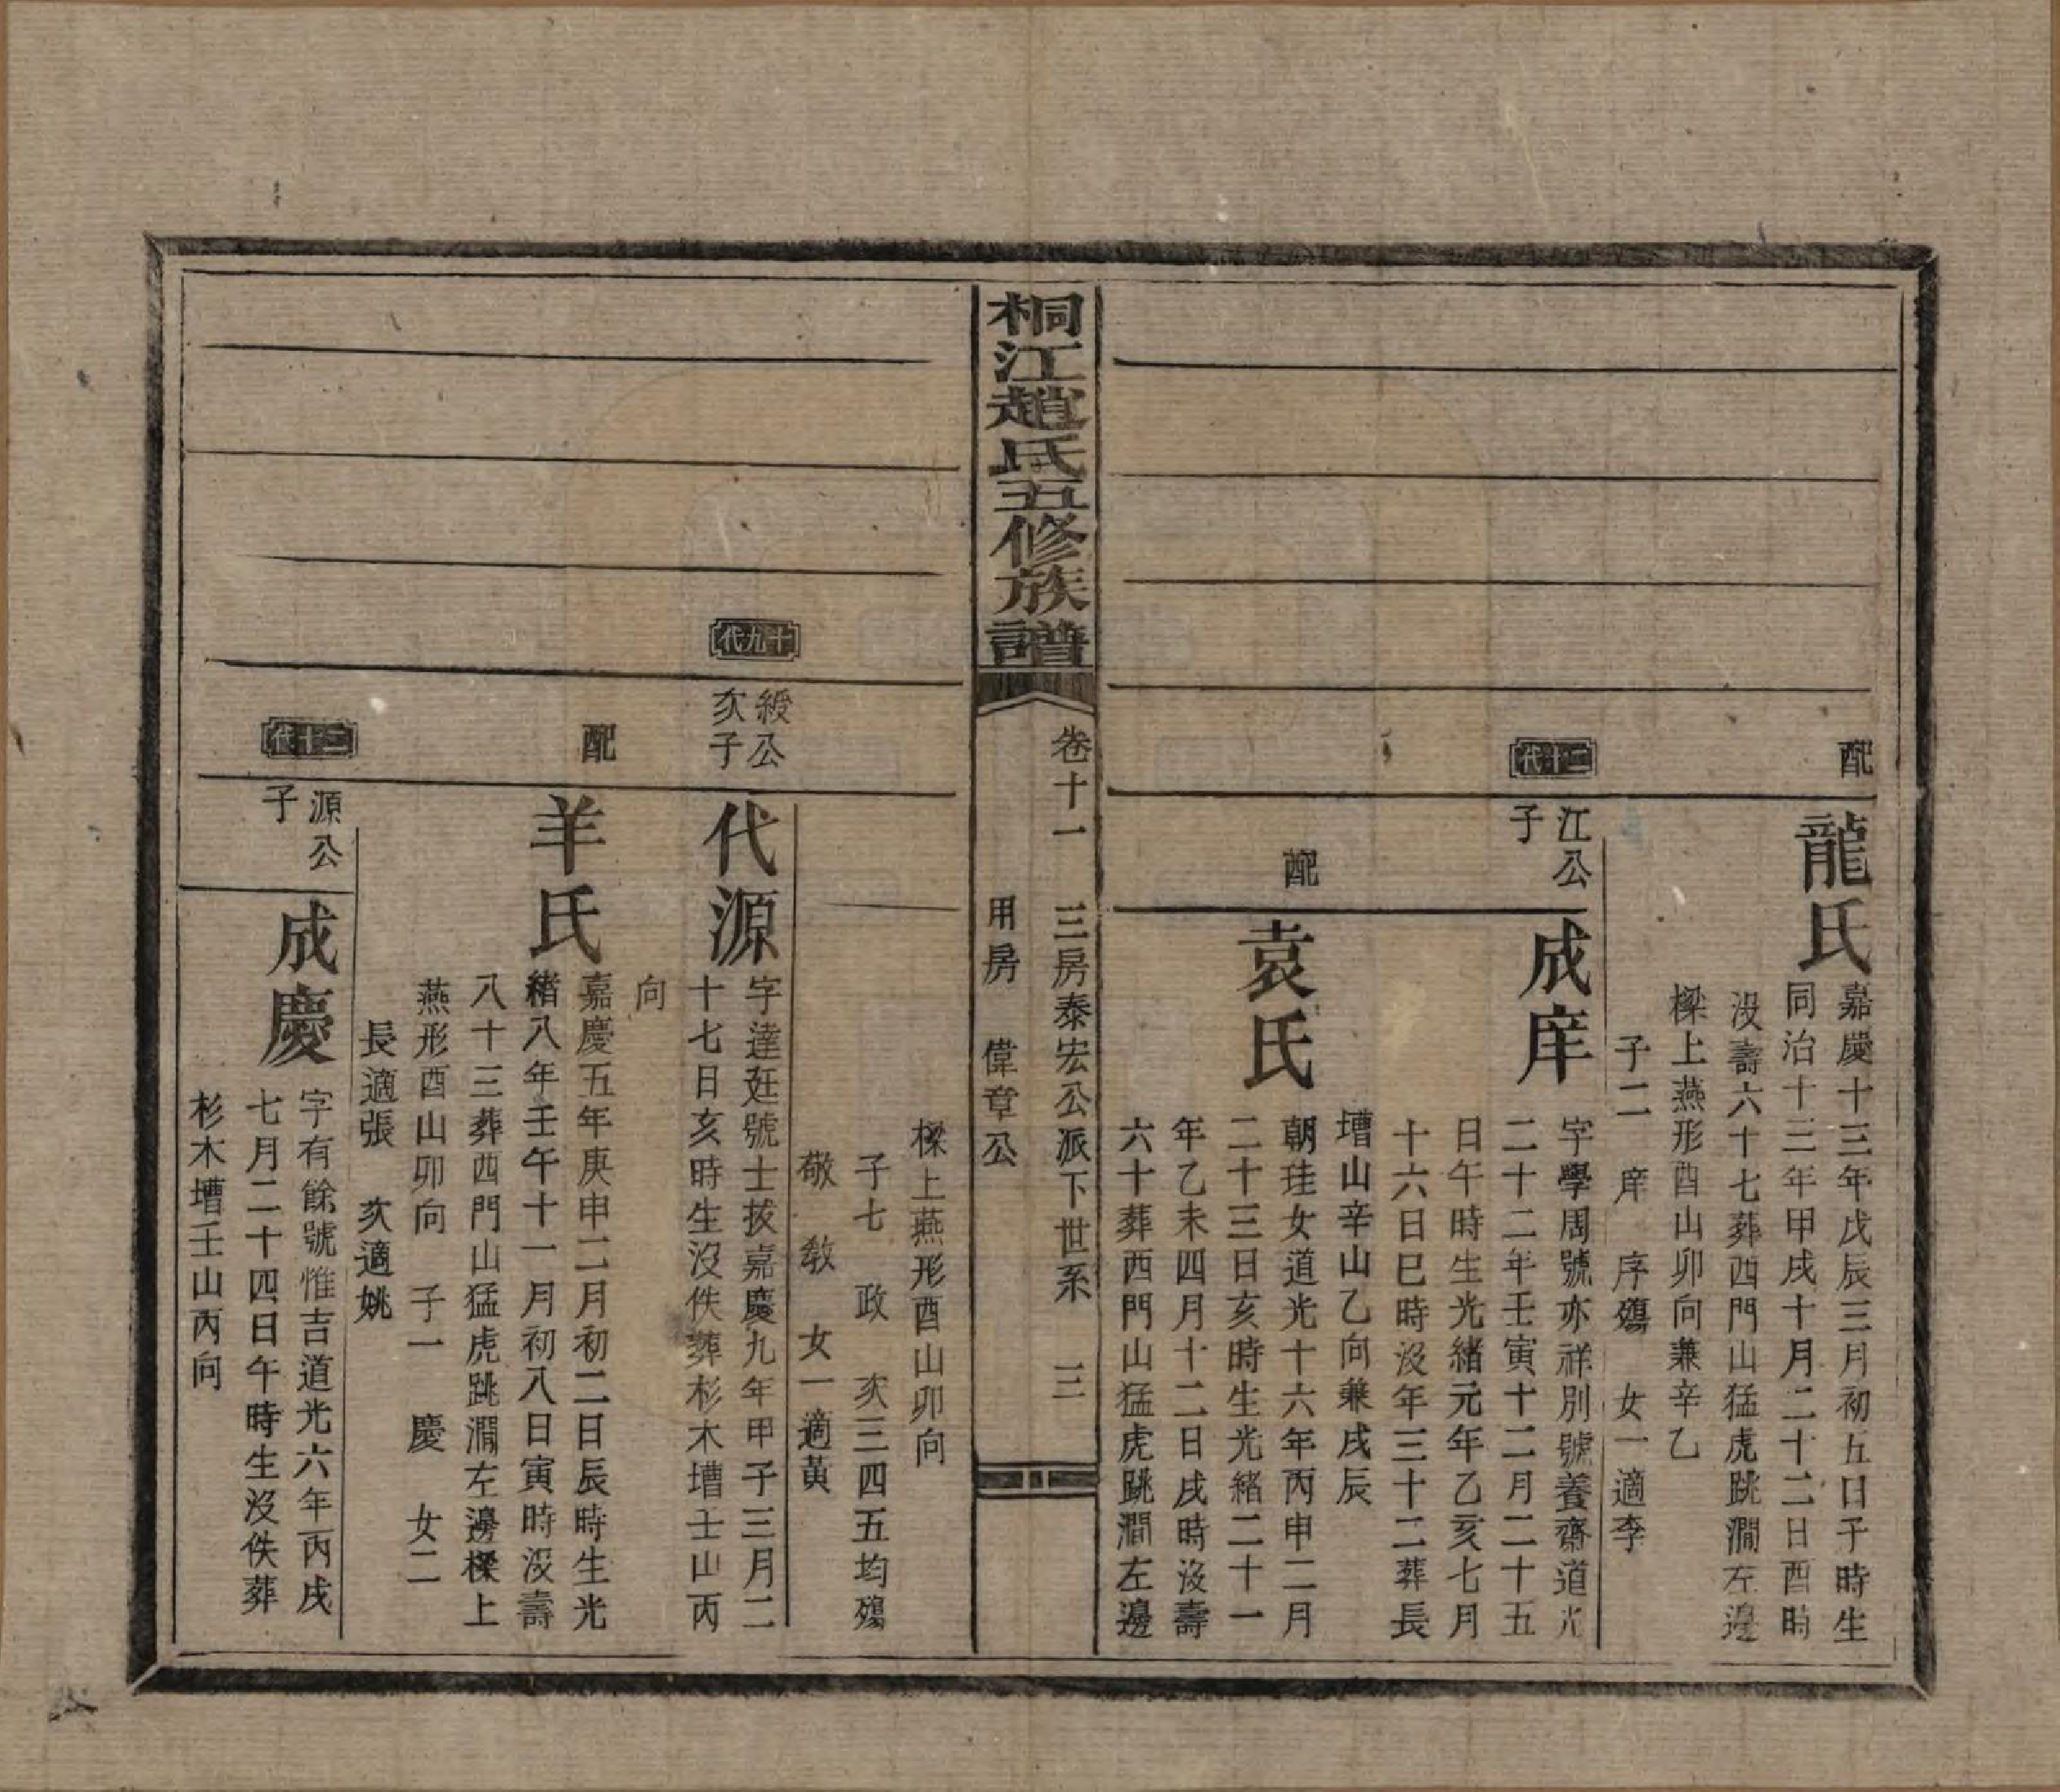 配
龍氏
嘉慶十三年戊辰三月初五日子時生
同治十三年甲戌十月二十二日酉時
沒壽六十七葬西門山猛虎跳澗左邊
樑上燕形酉山卯向兼辛乙
子二 庠 序殤 女一適李
二十代
江公
子
成庠
字學周號亦祥別號養齋道光
二十二年壬寅十二月二十五
日午時生光緒元年乙亥七月
十六日巳時沒年三十二葬長
壋山辛山乙向兼戌辰
配
袁氏
朝珪女道光十六年丙申二月
二十三日亥時生光緒二十一
年乙未四月十二日戌時沒壽
六十葬西門山猛虎跳澗左邊
桐江趙氏五修族譜
卷十一 三房泰宏公派下世系 三
用房 偉章公
樑上燕形酉山卯向
子七 政 亥三四五均殤
敬 教 女一適黃
十九代
綬公
亥子
代源
字達廷號士拔嘉慶九年甲子三月二
十七日亥時生沒佚葬杉木壋壬山丙
向
配
羊氏
嘉慶五年庚申二月初二日辰時生光
緒八年壬午十一月初八日寅時沒壽
八十三葬西門山猛虎跳澗左邊樑上
燕形酉山卯向 子一 慶 女二
長適張 亥適姚
二十代
源公
子
成慶
字有餘號惟吉道光六年丙戌
七月二十四日午時生沒佚葬
杉木壋壬山丙向